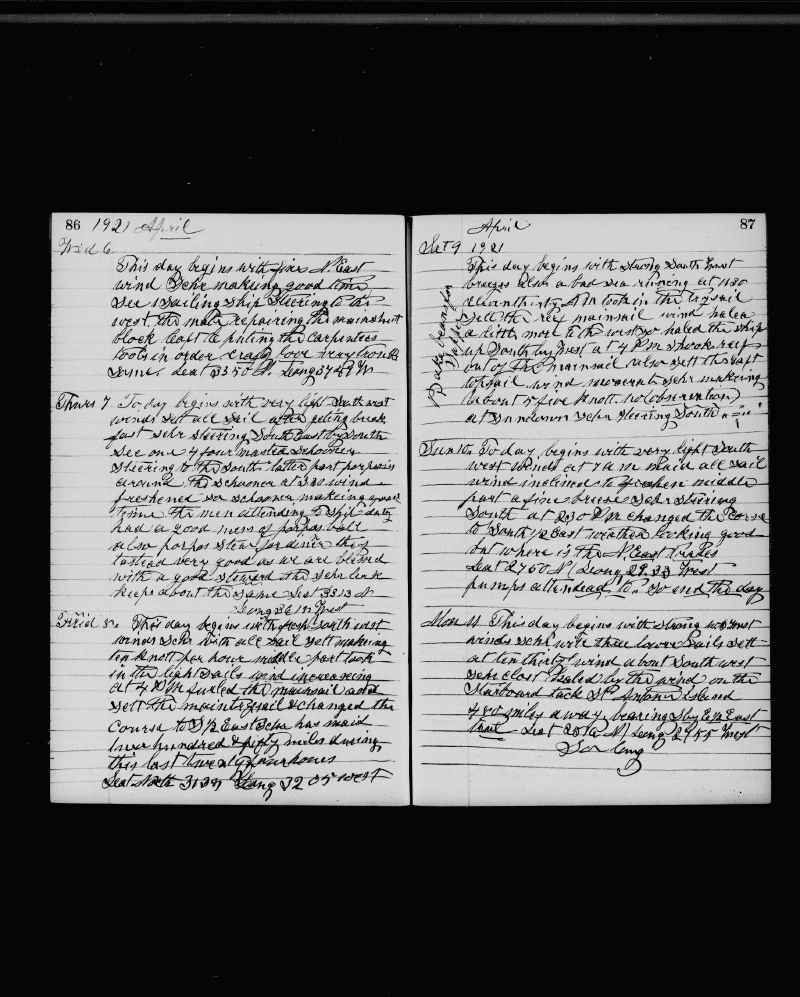 86 1921 April
Wed 6
This day begins with fine N. East
wind Schr making good time
See 1 sailing ship steering to the
west. The mate repairing the mainsheet
block Capt C puting the carpenters
tools in order crafts love very trouble
some. Leat 3350 N. Leong 3749 W
Thurs 7 To day begins with very ligh South west
winds sett all sail after peting break
fast schr steering South East by South
See one 4 four masted schooner
steering to the South latter part porposis
around the schooner at 330 wind
freshened so schooner makeing good
time the men attending to ship duty
had a good mess of porpos ball
also porpos stew for diner they
tasted very good as we are blessed
with a good steward the schr leak
keeps about the same Leat 3313 N
Leong 36 West
Frid 8 This day begins with fresh South west
winds schr with all sail sett making
ten knott per hour middle part took
in the light sails wind increaseing
at 4 P M furled the mainsail and
sett the main trysail & changed the
Course to S ½ East Schr has maid
two hundred & fifty miles during
this last twenty four houres
Leat North 3137 Leong 32 05 West
April 87
Sat 9 1921
This day begins with strong South West
breezes also a bad sea runing at 1130
eleven thirty A M took in the trysail
sett the reef mainsail wind haled
a little more to the west so haled the ship
up South by West at 4 P M shook reef
out of the mainsail also sett the gaft
topsail wind moderate schr making
(about 5 five knott no observation)
at sundown schr steering South
Bake beans for Supper
Sun 10 To day begins with very light South
west winds at 7 a m maid all sail
wind inclined to freshen middle
part a fine breeze schr steering
South at 230 P M changed the Corse
to South ½ East weather looking good
but where is the N. East trades
Leat 2750 N Leong 29.33 West
pumps attendead to. So end the day
Mon 11 This day begins with strong so West
winds schr with three lower Sails sett
at ten thirty wind about South west
schr close haled by the wind on the
Starboard tack St Antone Island
480 miles away bearing S by E ½ East
true Leat 25 N Leong 27 55 West